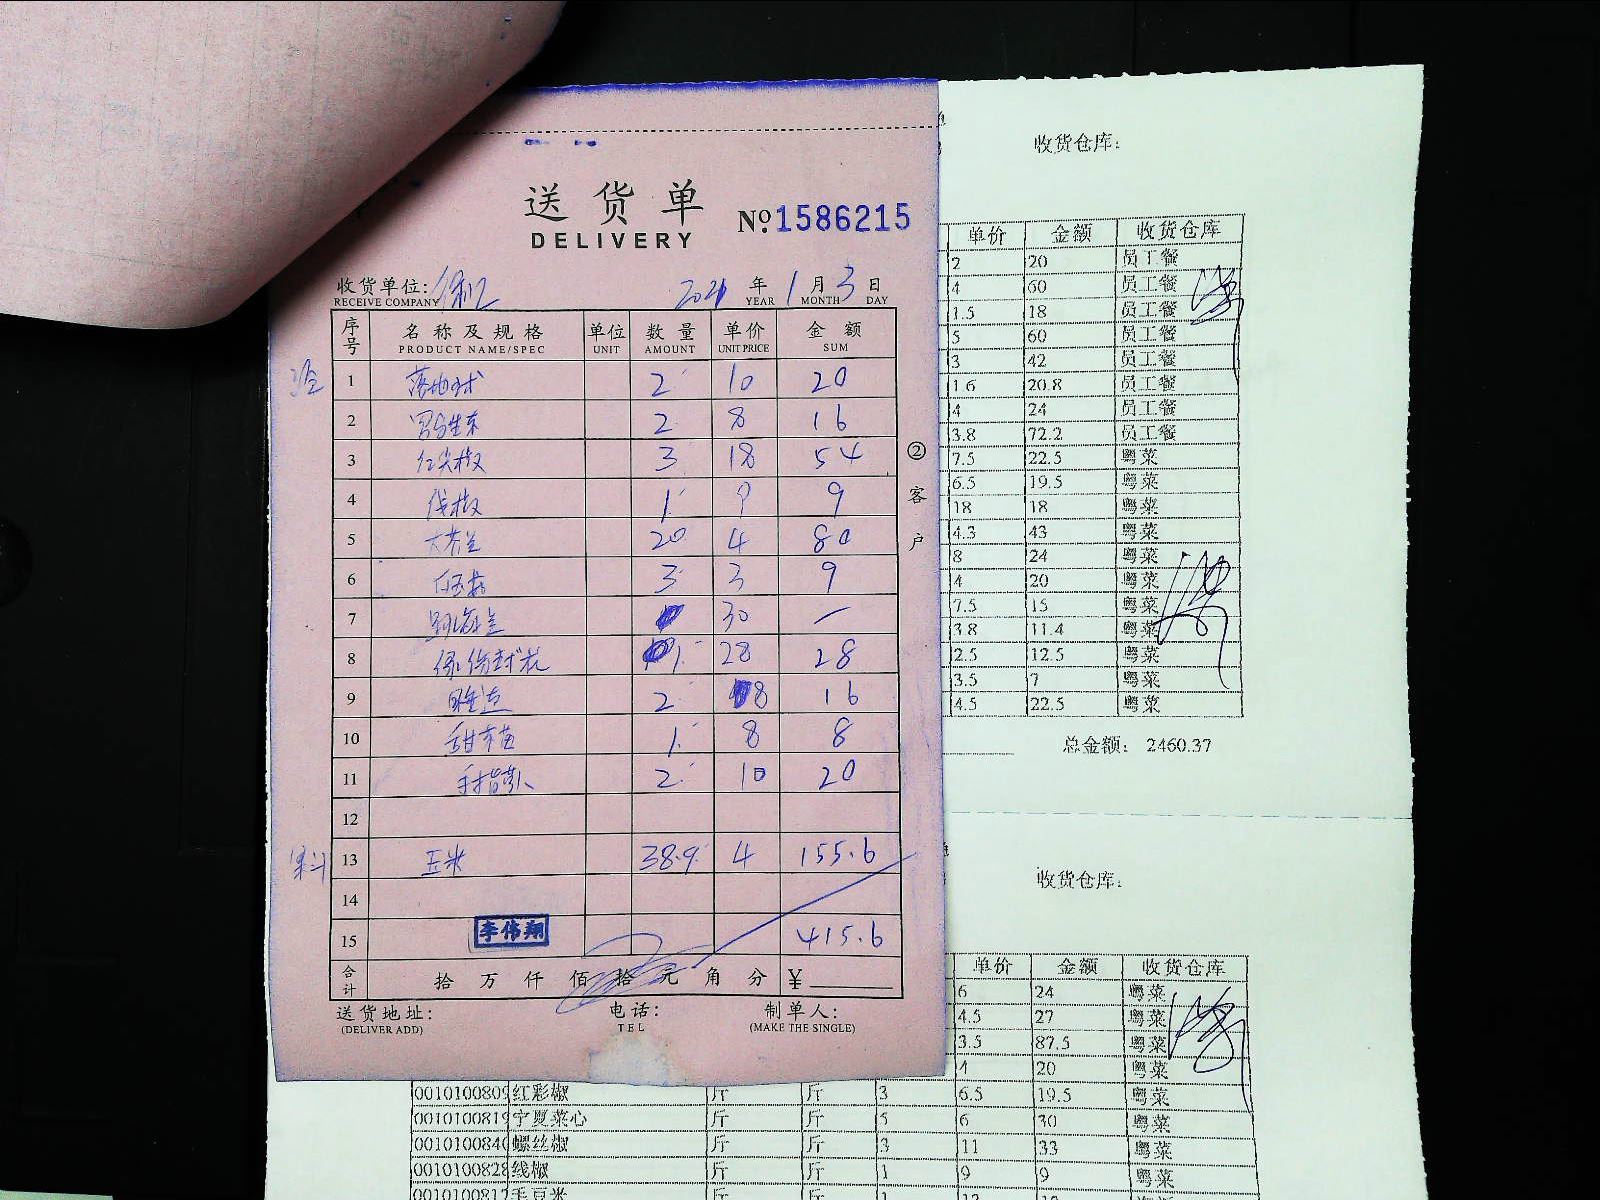 送货单
DELIVERY
№ 1586215
收货单位:
RECEIVE COMPANY
2021 年 1 月 3 日
YEAR MONTH DAY
序号 名称及规格 单位 数量 单价 金额
PRODUCT NAME/SPEC UNIT AMOUNT UNIT PRICE SUM
1 落地球 2 10 20
2 2 8 16
3 红尖椒 3 18 54
4 线椒 1 9 9
5 20 4 80
6 3 3 9
7 30 —
8 1 28 28
9 2 8 16
10 1 8 8
11 2 10 20
12
13 玉米 38.9 4 155.6
14
李伟翔
15 415.6
合计 拾万仟佰拾元角分 ¥
送货地址: 电话: 制单人:
(DELIVER ADD) TEL (MAKE THE SINGLE)
②客户
收货仓库:
单价 金额 收货仓库
2 20 员工餐
4 60 员工餐
1.5 18 员工餐
5 60 员工餐
3 42 员工餐
1.6 20.8 员工餐
4 24 员工餐
3.8 72.2 员工餐
7.5 22.5 粤菜
6.5 19.5 粤菜
18 18 粤菜
4.3 43 粤菜
8 24 粤菜
4 20 粤菜
7.5 15 粤菜
3.8 11.4 粤菜
2.5 12.5 粤菜
3.5 7 粤菜
4.5 22.5 粤菜
总金额: 2460.37
收货仓库:
单价 金额 收货仓库
6 24 粤菜
4.5 27 粤菜
3.5 87.5 粤菜
4 20 粤菜
0010100809 红彩椒 斤 斤 3 6.5 19.5 粤菜
0010100819 宁夏菜心 斤 斤 5 6 30 粤菜
0010100840 螺丝椒 斤 斤 3 11 33 粤菜
0010100828 线椒 斤 斤 1 9 9 粤菜